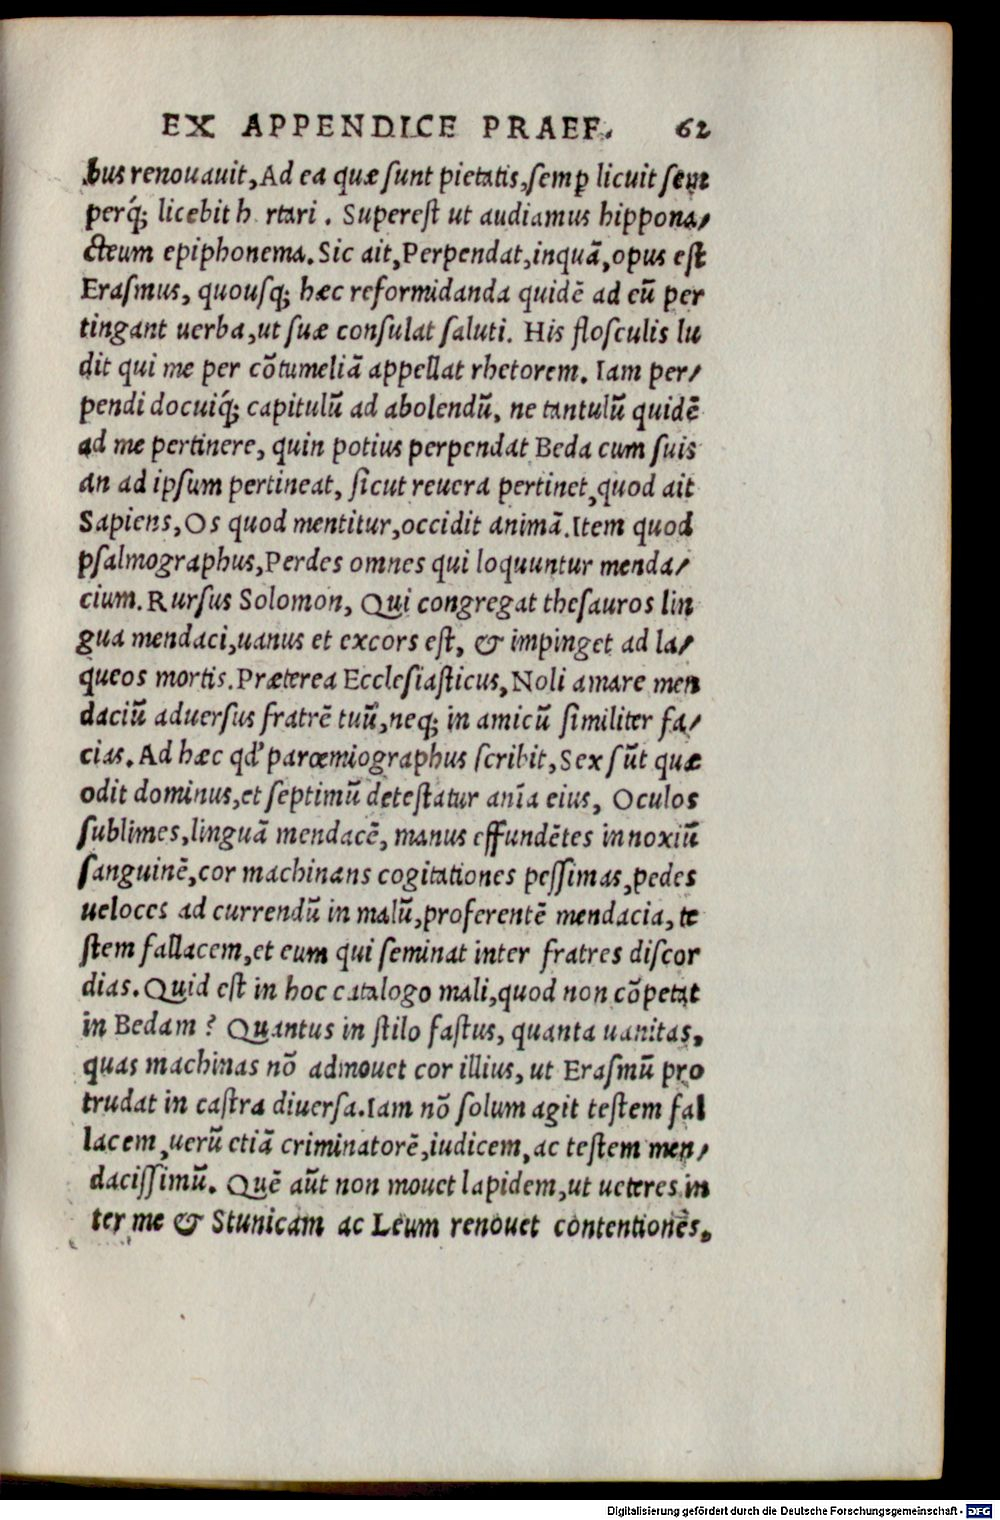 EX APPENDICE PRAEF. 62
bus renouauit, Ad ea quæ sunt pietatis, semꝑ licuit sem
perq́; licebit h rtari. Superest ut audiamus hippona/
cteum epiphonema. Sic ait, Perpendat, inquã, opus est
Erasmus, quousq; hæc reformidanda quidẽ ad eũ per
tingant uerba, ut suæ consulat saluti. His flosculis lu
dit qui me per cõtumeliã appellat rhetorem. Iam per/
pendi docuiq́; capitulũ ad abolendũ, ne tantulũ quidẽ
ad me pertinere, quin potius perpendat Beda cum suis
an ad ipsum pertineat, sicut reuera pertinet, quod ait
Sapiens, Os quod mentitur, occidit animã. Item quod
psalmographus, Perdes omnes qui loquuntur menda/
cium. Rursus Solomon, Qui congregat thesauros lin
gua mendaci, uanus et excors est, & impinget ad la/
queos mortis. Præterea Ecclesiasticus, Noli amare men
daciũ aduersus fratrẽ tuũ, neq; in amicũ similiter fa/
cias. Ad hæc qd' parœmiographus scribit, Sex sũt quæ
odit dominus, et septimũ detestatur anĩa eius, Oculos
sublimes, linguã mendacẽ, manus effundẽtes innoxiũ
sanguinẽ, cor machinans cogitationes pessimas, pedes
ueloces ad currendũ in malũ, proferentẽ mendacia, te
stem fallacem, et eum qui seminat inter fratres discor
dias. Quid est in hoc catalogo mali, quod non cõpetat
in Bedam? Quantus in stilo fastus, quanta uanitas,
quas machinas nõ admouet cor illius, ut Erasmũ pro
trudat in castra diuersa. Iam nõ solum agit testem fal
lacem, uerũ etiã criminatorẽ, iudicem, ac testem men/
dacissimũ. Quẽ aũt non mouet lapidem, ut ueteres in
ter me & Stunicam ac Leum renouet contentiones.
Digitalisierung gefördert durch die Deutsche Forschungsgemeinschaft - DFG